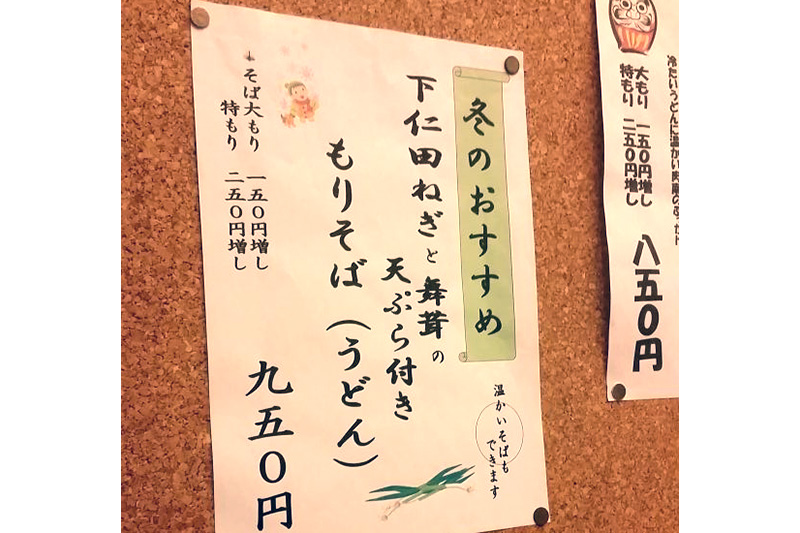 冬のおすすめ
温かいそばも
できます
下仁田ねぎと舞茸の
天ぷら付き
もりそば（うどん）
そば大もり 一五〇円増し
特もり 二五〇円増し
九五〇円
大もり 一五〇円増し
特もり 二五〇円増し
八五〇円